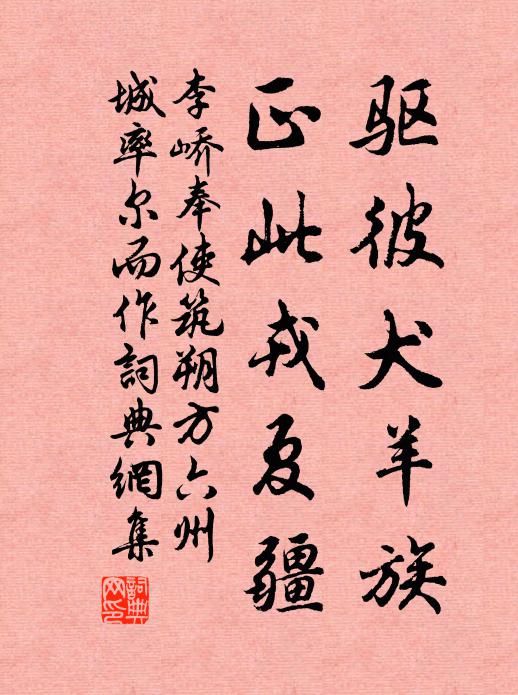 驱彼犬羊族
正此戎夏疆
李峤奉使筑朔方六州
城率尔而作詞典網集
詞典网印